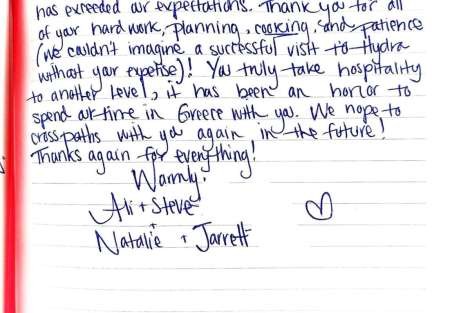 has exceeded our expectations. Thank you for all
of your hard work, planning, cooking, and patience
(we couldn't imagine a successful visit to Hydra
without your expertise)! You truly take hospitality
to another level, it has been an honor to
spend our time in Greece with you. We hope to
cross paths with you again in the future!
Thanks again for everything!
Warmly,
Ali + Steve
+
Natalie + Jarrett